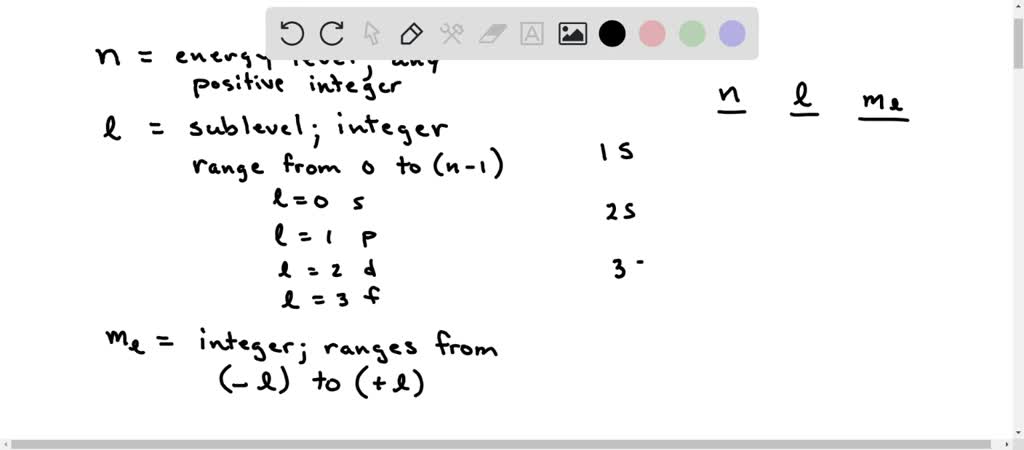 n = energy level; any
positive integer
l = sublevel; integer
range from 0 to (n-1)
l = 0 s
l = 1 p
l = 2 d
l = 3 f
ml = integer; ranges from
(-l) to (+l)
n l ml
1s
2s
3-
A